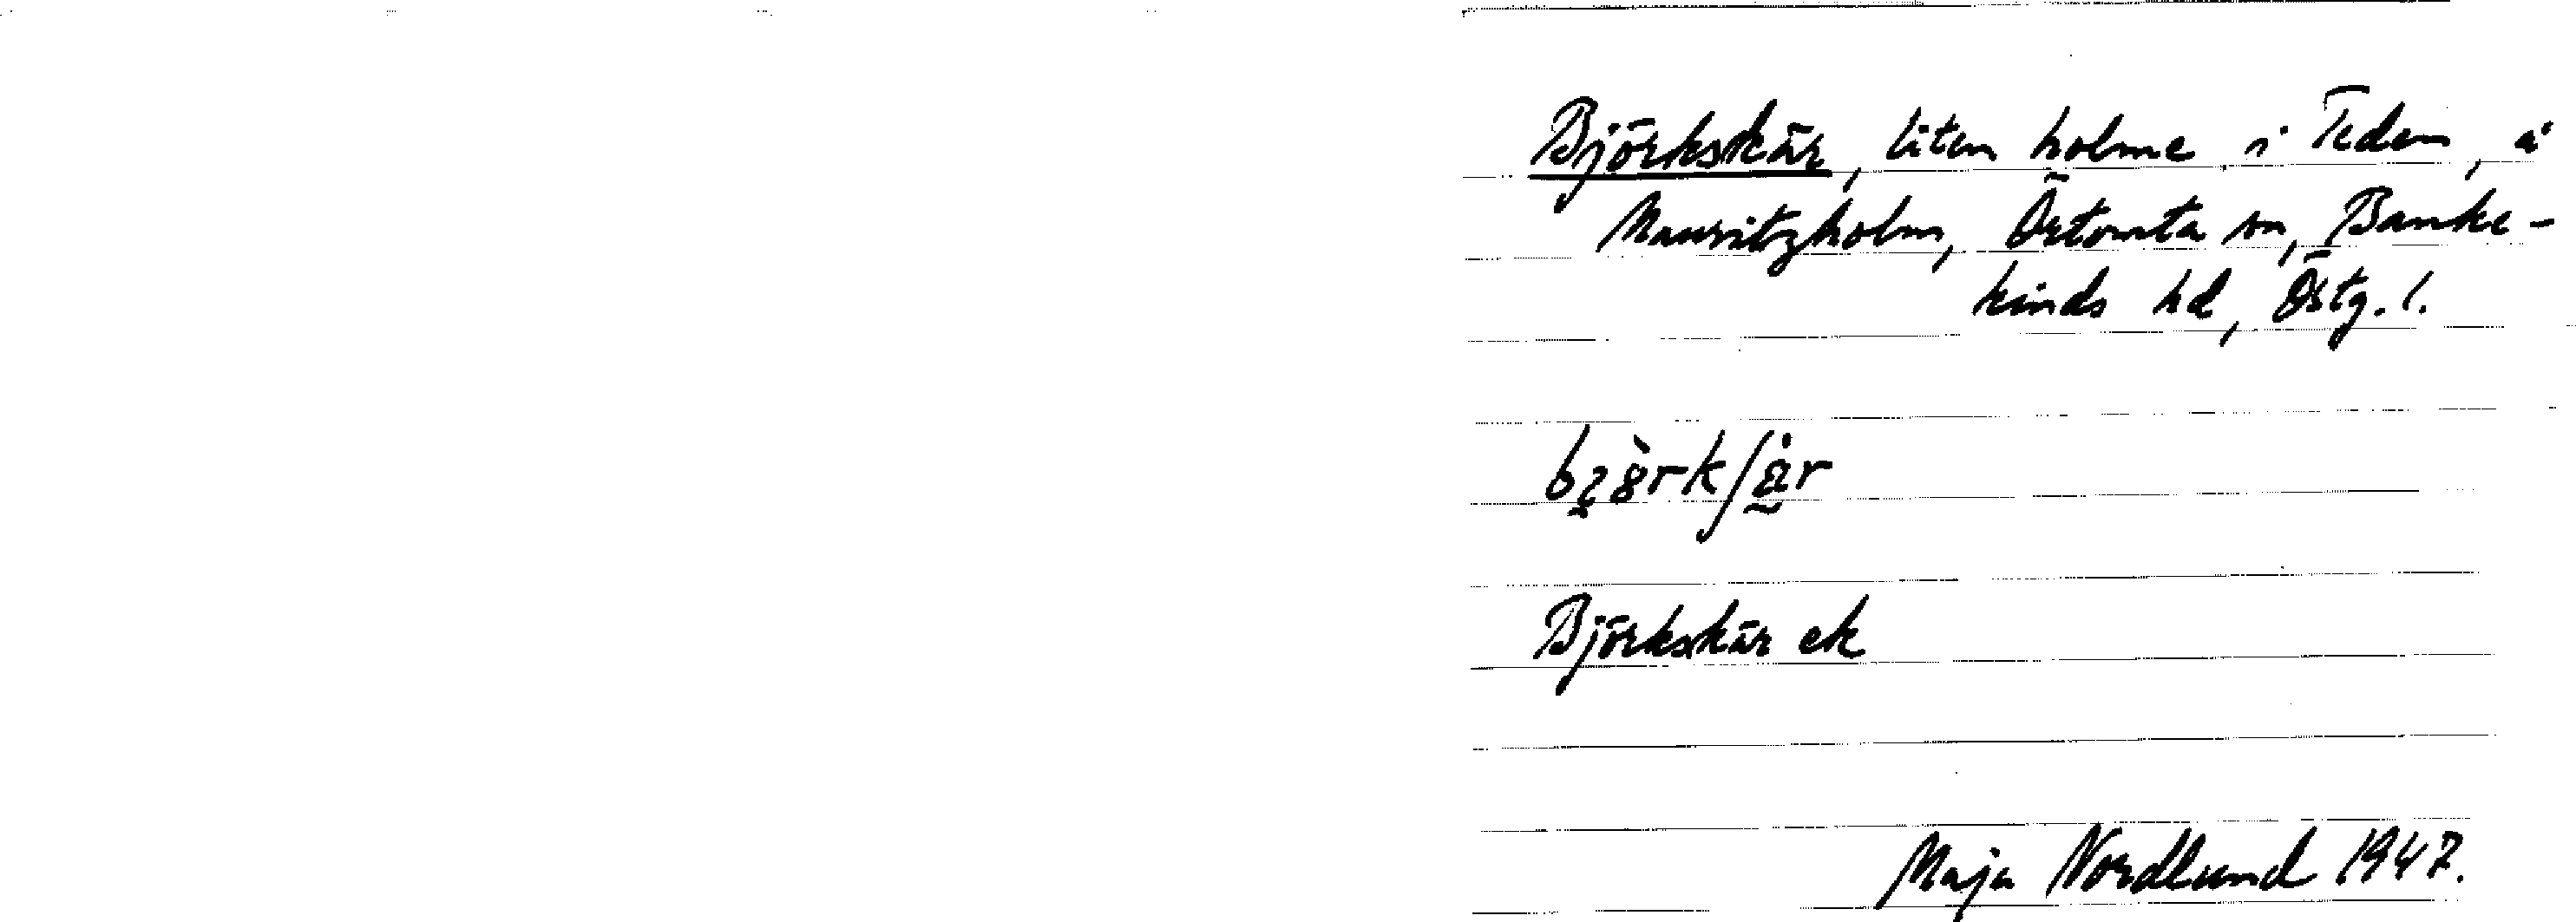 Björkskär, liten holme i Teden, å
Mauritzholm, Örtomta sn, Banke-
kinds hd, Östg. l.
Björkskär ek
Maja Nordlund 1947.